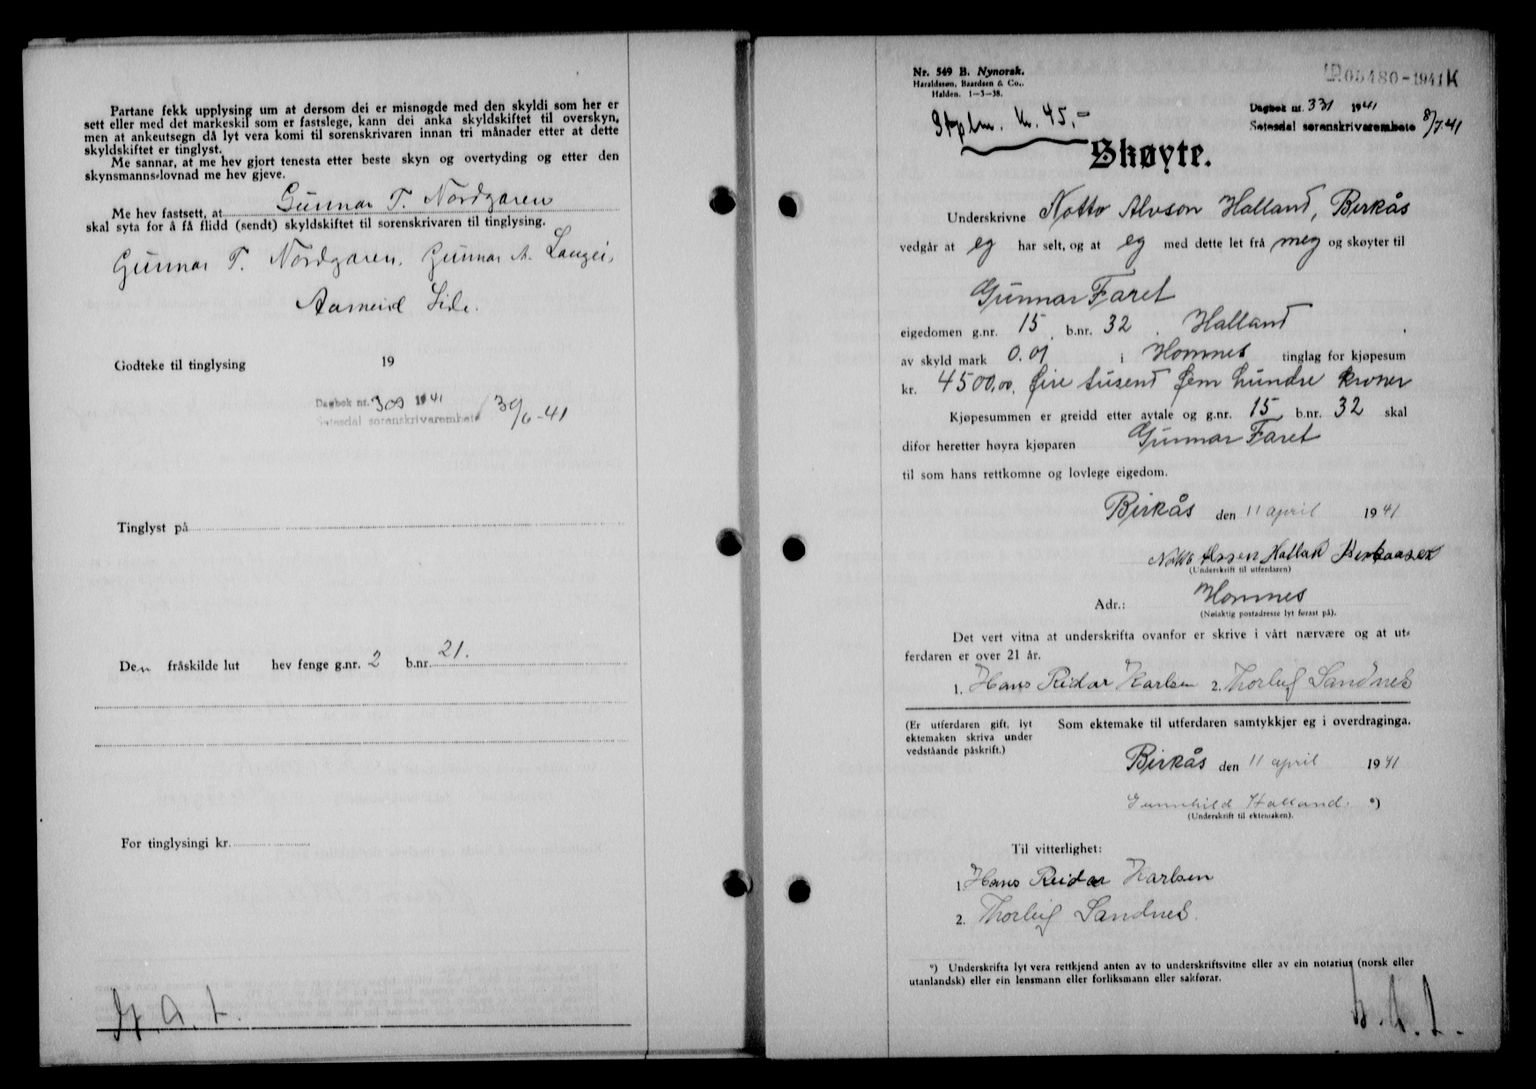 Partane fekk upplysing um at dersom dei er misnøgde med den skyldi som her er
sett eller med det markeskil som er fastslege, kann dei anka skyldskiftet til overskyn,
men at ankeutsegn då lyt vera komi til sorenskrivaren innan tri månader etter at dette
skyldskiftet er tinglyst.
Me sannar, at me hev gjort tenesta etter beste skyn og overtyding og etter den
skynsmannslovnad me hev gjeve.
Me hev fastsett, at Gunnar T. Nordgaren
skal syta for å få flidd (sendt) skyldskiftet til sorenskrivaren til tinglysing.
Gunnar T. Nordgaren. Gunnar A. Langei,
Aasmund Lide.
Godteke til tinglysing 19
Dagbok nr. 309 1941 30/6-41
Setesdal sorenskriverembete
Tinglyst på
Den fråskilde lut hev fenge g.nr. 2 b.nr. 21.
For tinglysingi kr.
Nr. 549 B. Nynorsk.
Haraldssøn, Baardsen & Co.,
Halden. 1-3-38.
05480-1941 K
Stplm. kr. 45,-
Dagbok nr. 331 1941
Setesdal sorenskriverembete 8/7-41
Skøyte.
Underskrivne Notto Alvson Halland, Birkås
vedgår at eg har selt, og at eg med dette let frå meg og skøyter til
Gunnar Faret
eigedomen g.nr. 15 b.nr. 32 . Halland
av skyld mark 0.01 i Hornnes tinglag for kjøpesum
kr. 4500,00, fire tusend fem hundre kroner
Kjøpesummen er greidd etter avtale og g.nr. 15 b.nr. 32 skal
difor heretter høyra kjøparen Gunnar Faret
til som hans rettkomne og lovlege eigedom.
Birkås den 11 april 1941
Halland
(Underskrift til utferdaren)
Adr.: Hornnes
(Nøiaktig postadresse lyt førast på).
Det vert vitna at underskrifta ovanfor er skrive i vårt nærvære og at ut-
ferdaren er over 21 år.
1. Hans Reidar Karlsen 2. Thorleif Sandnes
(Er utferdaren gift, lyt
ektemaken skriva under
vedståande påskrift.)
Som ektemake til utferdaren samtykkjer eg i overdraginga.
Birkås den 11 april 1941
Gunnhild Halland. *)
(Underskrift til ektemaken).
Til vitterlighet:
1. Hans Reidar Karlsen
2. Thorleif Sandnes.
*) Underskrifta lyt vera rettkjend anten av to underskriftsvitne eller av ein notarius (norsk eller
utanlandsk) eller ein lensmann eller forliksmann eller sakførar.